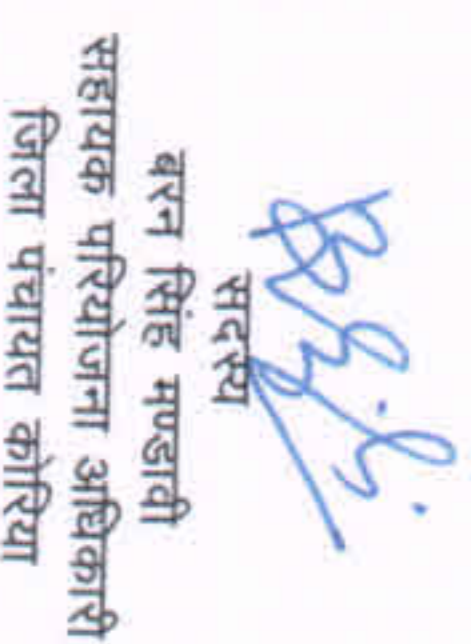 सदस्य
बरन सिंह मण्डावी
सहायक परियोजना अधिकारी
जिला पंचायत कोरिया